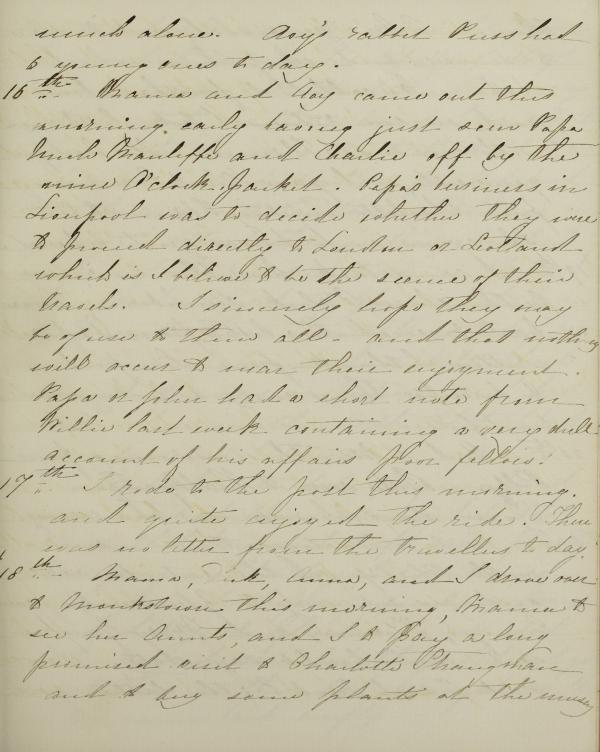 much alone. Aoy's rabbit Puss had
6 young ones to day.
16th Mama and Aoy came out this
morning early having just seen Papa
Uncle and Charlie off by the
nine O'clock Packet. Papa's business in
Liverpool was to decide whether they were
to proceed directly to London or Scotland
which is I believe to be the scene of their
travels. I sincerely hope they may
be of use to them all - and that nothing
will occur to mar their enjoyment.
Papa or John had a short note from
Willie last week containing a very dull
account of his affairs poor fellow!
17th I rode to the post this morning.
and quite enjoyed the ride. There
was no letter from the travellers to day.
18th Mama, Anna, and I drove over
to Monkstown this morning, Mama to
see her Aunts, and I to pay a long
promised visit to Charlotte Strangman
and to buy some plants at the nursery